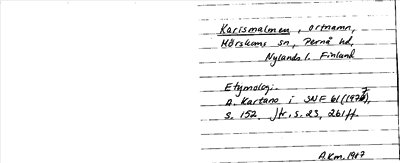 Karismalmen, ortnamn,
Mörskoms sn, Pernå hd,
Nylands l. Finland
Etymologi:
A. Kartano i SNF 61 (1972),
s. 152. Jfr. s. 23, 261 ff.
A.Km. 1987